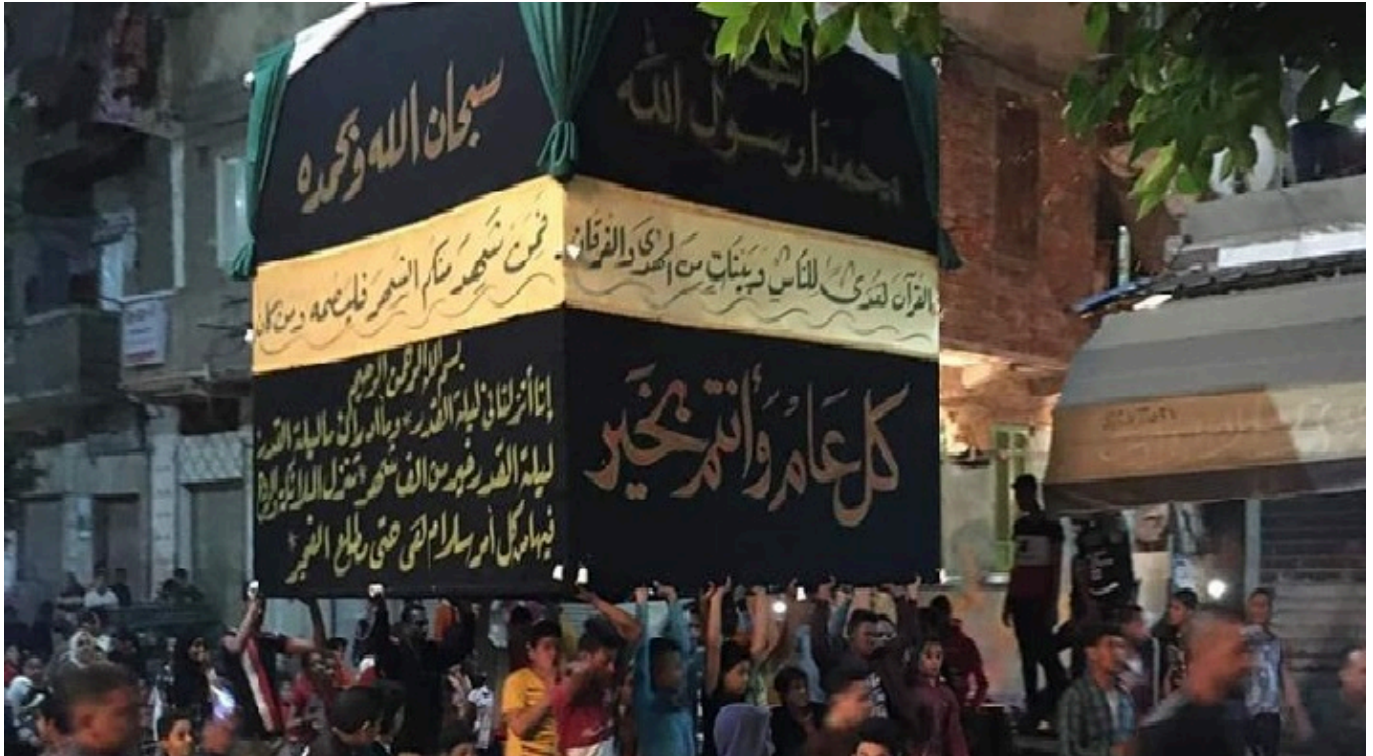 سبحان الله وبحمده
محمدا رسول الله
فمن شهد منكم الشهر فليصمه ومن كان
القرآن هدى للناس وبينات من الهدى والفرقان
بسم الله الرحمن الرحيم
إنا أنزلنا في ليلة القدر * وما أدراك ما ليلة القدر
ليلة القدر خير من الف شهر * تنزل الملائكة
فيها من كل أمر سلام هى حتى مطلع الفجر *
كل عام وأنتم بخير